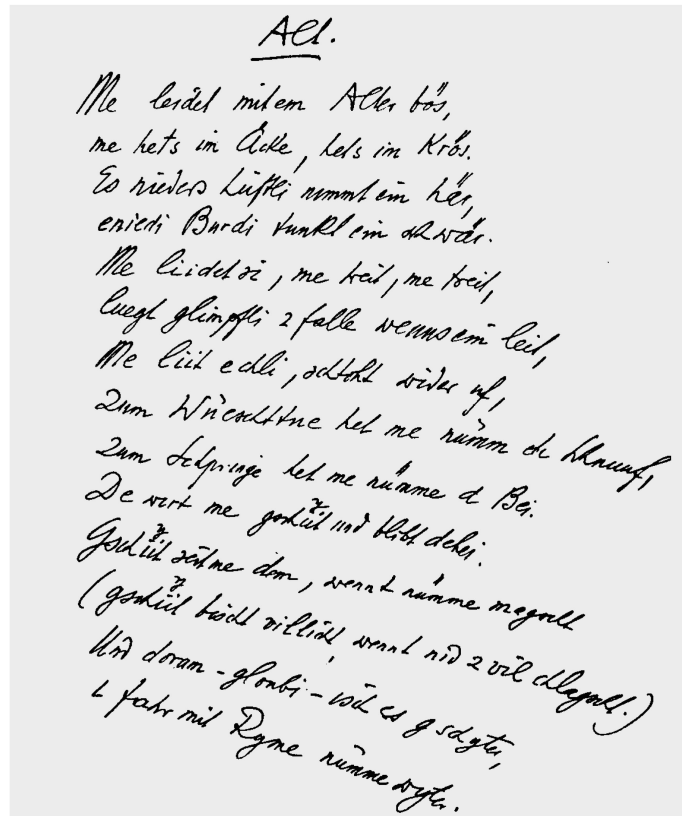 Alt.
Me leidet mit em Alter bös,
me hets im Äcke, hets im Krös.
Es nieders Lüftli nimmt ein här,
eniedi Burdi tunkt ein schwär.
Me liidet si, me treit, me treit,
luegt glimpfli z falle wenns ein leit,
Me liit echli, schtoht wider uf,
zum Wüeschttue het me nümm de Schnuuf,
zum Schpringe het me nümme d Bei.
De wird me gschüt und blibt dehei.
Gschüt seit me dem, wennt nümme magscht
(gschüt bischt villicht, wennt nid z vil chlagscht.)
Und dorum - gloubi - isch es gschyter,
i fahr mit Ryme nümme wyter.